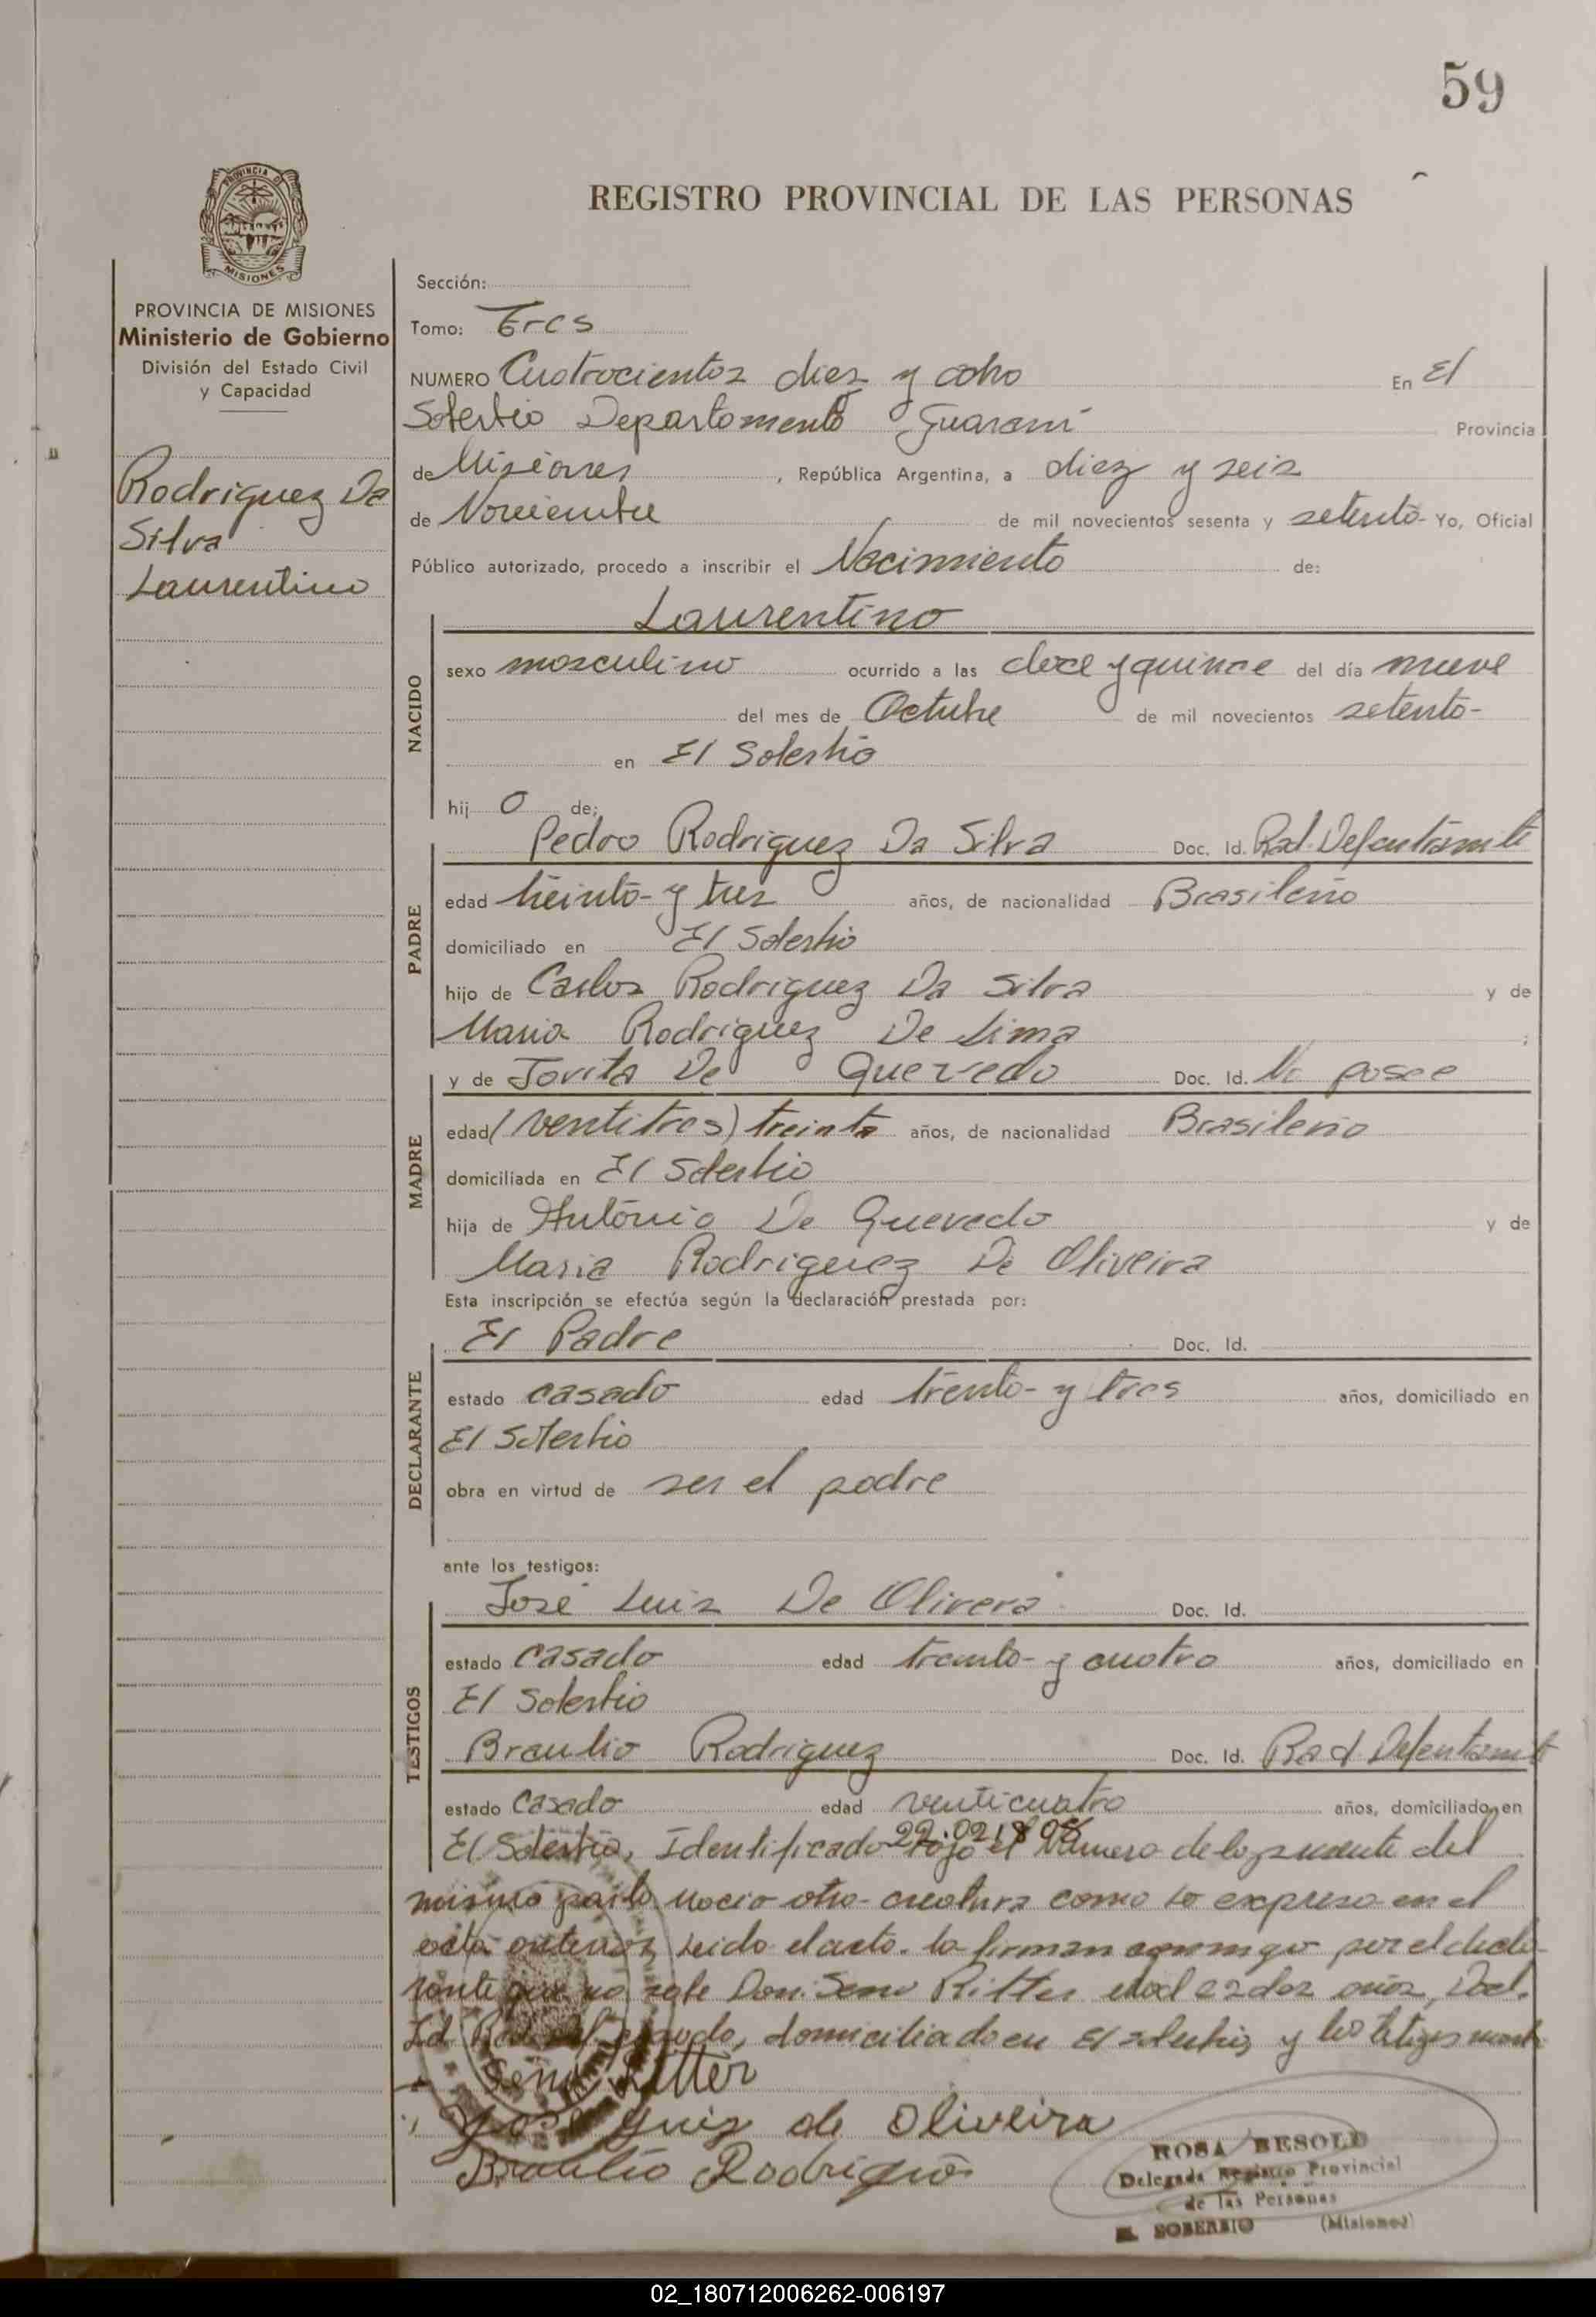 59
REGISTRO PROVINCIAL DE LAS PERSONAS
PROVINCIA DE MISIONES
PROVINCIA DE MISIONES
Ministerio de Gobierno
División del Estado Civil
y Capacidad
Rodriguez Da
Silva
Laurentino
Sección:
Tomo: Tres
NUMERO Cuatrocientos diez y ocho En El
Soberbio Departamento Guaraní Provincia
de Misiones, República Argentina, a diez y seis
de Noviembre de mil novecientos sesenta y setenta- Yo, Oficial
Público autorizado, procedo a inscribir el Nacimiento de:
Laurentino
NACIDO
sexo masculino ocurrido a las doce y quince del día nueve
del mes de Octubre de mil novecientos setenta-
en El Soberbio
hij o de:
Pedro Rodriguez Da Silva Doc. Id. Rad. Def. en trámite
PADRE
edad treinta- y tres años, de nacionalidad Brasileño
domiciliado en El Soberbio
hijo de Carlos Rodriguez Da Silva y de
Maria Rodriguez De Lima ;
y de Jovita De Quevedo Doc. Id. No posee
MADRE
edad (ventitres) treinta años, de nacionalidad Brasileña
domiciliada en El Soberbio
hija de Antonio De Quevedo y de
Maria Rodriguez De Oliveira
Esta inscripción se efectúa según la declaración prestada por:
El Padre Doc. Id.
DECLARANTE
estado casado edad trenta- y tres años, domiciliado en
El Soberbio
obra en virtud de ser el padre
ante los testigos:
José Luis De Olivera Doc. Id.
TESTIGOS
estado casado edad treinta- y cuatro años, domiciliado en
El Soberbio
Braulio Rodriguez Doc. Id. Rad Def en tramit
estado casado edad venticuatro años, domiciliado en
El Soberbio, Identificado bajo el Número de la presente del
mismo parto nacio otra creatura como lo expresa en el
acta anterior Leido el acta. la firman conmigo por el decla-
rante que no sabe Don: Seno Ritter edad 22 dos años, Doc.
Id domiciliado en El Soberbio y los testigos
Seno Ritter
José Luis de Oliveira
Braulio Rodrigues
ROSA BESOLD
Delegada Registro Provincial
de las Personas
EL SOBERBIO (Misiones)
02_180712006262-006197